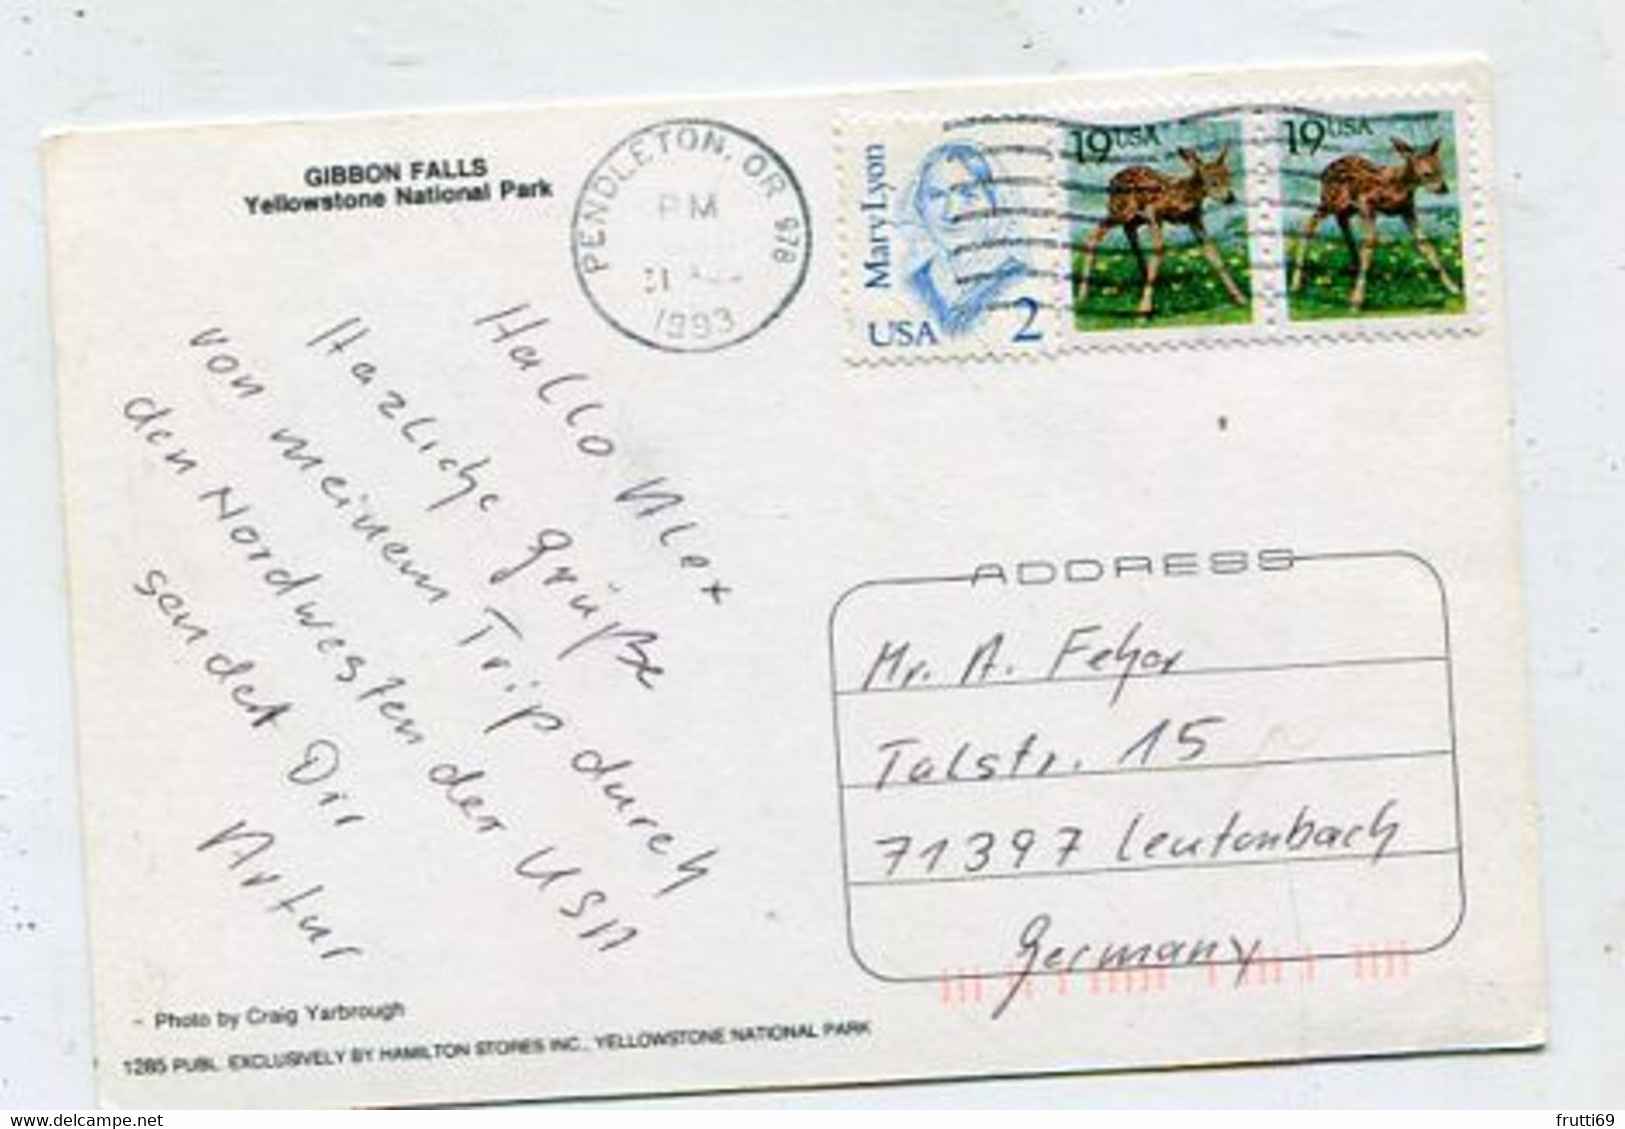 GIBBON FALLS
Yellowstone National Park
PENDLETON, OR 978
PM
1993
Mary Lyon
USA 2
19 USA
19 USA
Hallo Alex
Herzliche Grüße
von meinem Trip durch
den Nordwesten der USA
sendet Dir
Artur
ADDRESS
Mr. A.
Talstr. 15
71397 Leutenbach
Germany
Photo by Craig Yarbrough
1285 PUBL. EXCLUSIVELY BY HAMILTON STORES INC., YELLOWSTONE NATIONAL PARK
frutti69